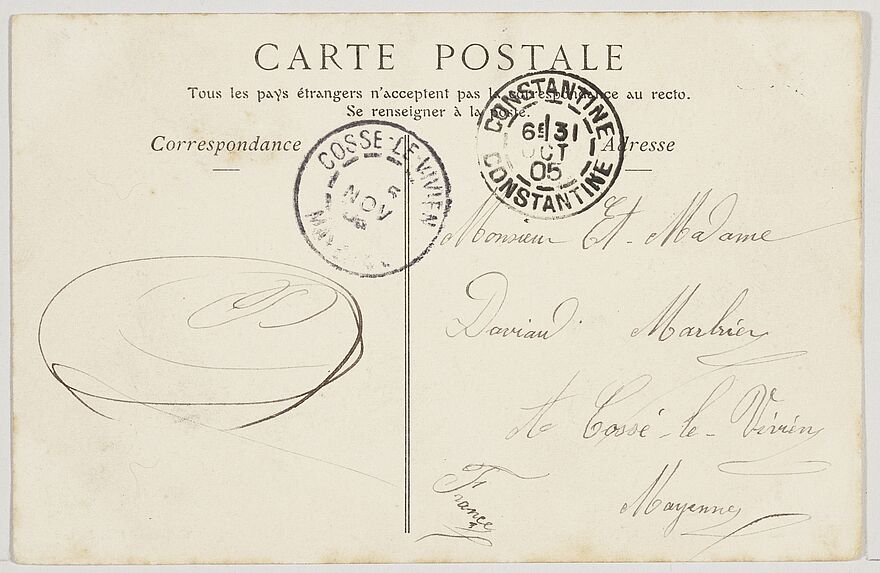 CARTE POSTALE
Tous les pays étrangers n'acceptent pas la correspondance au recto.
Se renseigner à la poste.
Correspondance
Adresse
CONSTANTINE
6E 31
OCT
05
CONSTANTINE
COSSE-LE-VIVIEN
5
NOV
MAYENNE
Monsieur Et Madame
Daviau Marbrier
A Cossé-le-Vivien
Mayenne
France